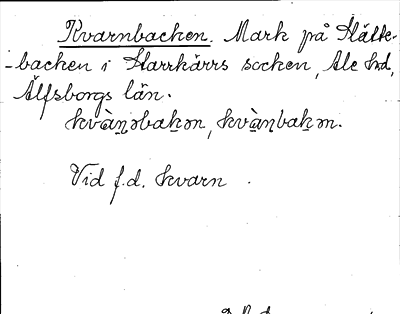 Kvarnbacken. Mark på Hälte-
-backen i Starrkärrs socken, Ale hd,
Älfsborgs län.
kvàṉəbaḵən, kvàṉbaḵən.
Vid f.d. kvarn.